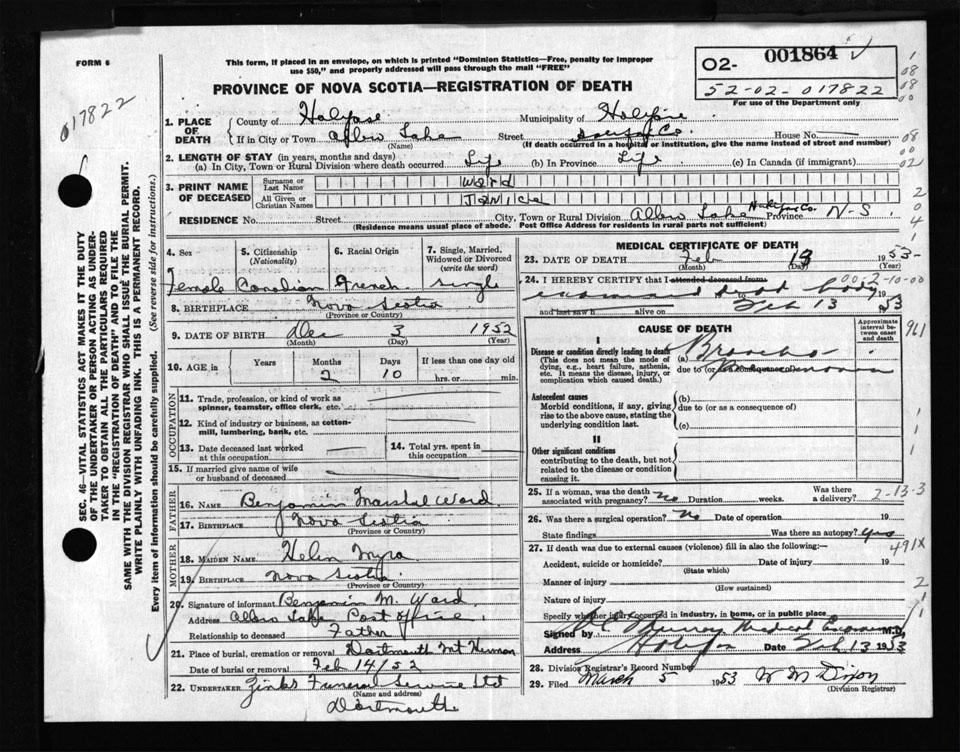 FORM 6
This form, if placed in an envelope, on which is printed "Dominion Statistics—Free, penalty for improper
use $50," and properly addressed will pass through the mail "FREE"
PROVINCE OF NOVA SCOTIA—REGISTRATION OF DEATH
001864
O2-
52-02-017822
For use of the Department only
017822
1. PLACE OF DEATH
County of Halifax Municipality of Halifax
If in City or Town Albro Lake Street Halifax Co. House No.
(Name) (If death occurred in a hospital or institution, give the name instead of street and number)
2. LENGTH OF STAY (in years, months and days)
(a) In City, Town or Rural Division where death occurred Life (b) In Province Life (c) In Canada (if immigrant)
3. PRINT NAME OF DECEASED
Surname or Last Name Ward
All Given or Christian Names Janice
RESIDENCE No. Street City, Town or Rural Division Albro Lake Halifax Co. Province N-S.
(Residence means usual place of abode. Post Office Address for residents in rural parts not sufficient)
4. Sex 5. Citizenship (Nationality) 6. Racial Origin 7. Single, Married, Widowed or Divorced (write the word)
Female Canadian French Single
8. BIRTHPLACE Nova Scotia
(Province or Country)
9. DATE OF BIRTH Dec 3 1952
(Month) (Day) (Year)
10. AGE in Years Months Days If less than one day old
2 10 hrs. or min.
OCCUPATION
11. Trade, profession, or kind of work as spinner, teamster, office clerk, etc.
12. Kind of industry or business, as cotton-mill, lumbering, bank, etc.
13. Date deceased last worked at this occupation
14. Total yrs. spent in this occupation
15. If married give name of wife or husband of deceased
FATHER
16. NAME Benjamin Marshal Ward
17. BIRTHPLACE Nova Scotia
(Province or Country)
MOTHER
18. MAIDEN NAME Helen Myra
19. BIRTHPLACE Nova Scotia
(Province or Country)
20. Signature of informant Benjamin M. Ward
Address Albro Lake Post office
Relationship to deceased Father
21. Place of burial, cremation or removal Dartmouth Mt Herman
Date of burial or removal Feb 14/52
22. UNDERTAKER Zinks Funeral Service Ltd
(Name and address)
Dartmouth
MEDICAL CERTIFICATE OF DEATH
23. DATE OF DEATH Feb 13 1953
(Month) (Day) (Year)
24. I HEREBY CERTIFY that I attended deceased from
00-2-10-00
examined dead body
to Feb 13 1953
and last saw h alive on 19
CAUSE OF DEATH
Approximate interval between onset and death
I
Disease or condition directly leading to death
(This does not mean the mode of dying, e.g., heart failure, asthenia, etc. It means the disease, injury, or complication which caused death.)
(a) Broncho
due to (or as a consequence of) pneumonia
Antecedent causes
Morbid conditions, if any, giving rise to the above cause, stating the underlying condition last.
(b)
due to (or as a consequence of)
(c)
II
Other significant conditions
contributing to the death, but not related to the disease or condition causing it.
25. If a woman, was the death associated with pregnancy? no Duration weeks. Was there a delivery?
2-13-3
26. Was there a surgical operation? No Date of operation 19
State findings Was there an autopsy? Yes
27. If death was due to external causes (violence) fill in also the following:—
491X
Accident, suicide or homicide? Date of injury 19
(State which)
Manner of injury
(How sustained)
Nature of injury
Specify whether injury occurred in industry, in home, or in public place
Signed by Medical Examiner M.D.
Address Halifax Date Feb 13 1953
28. Division Registrar's Record Number
29. Filed March 5 1953 W M Dixon
(Division Registrar)
SEC. 46—VITAL STATISTICS ACT MAKES IT THE DUTY
OF THE UNDERTAKER OR PERSON ACTING AS UNDER-
TAKER TO OBTAIN ALL THE PARTICULARS REQUIRED
IN THE "REGISTRATION OF DEATH" AND TO FILE THE
SAME WITH THE DIVISION REGISTRAR WHO SHALL ISSUE THE BURIAL PERMIT.
WRITE PLAINLY WITH UNFADING INK. THIS IS A PERMANENT RECORD.
Every item of information should be carefully supplied. (See reverse side for instructions.)